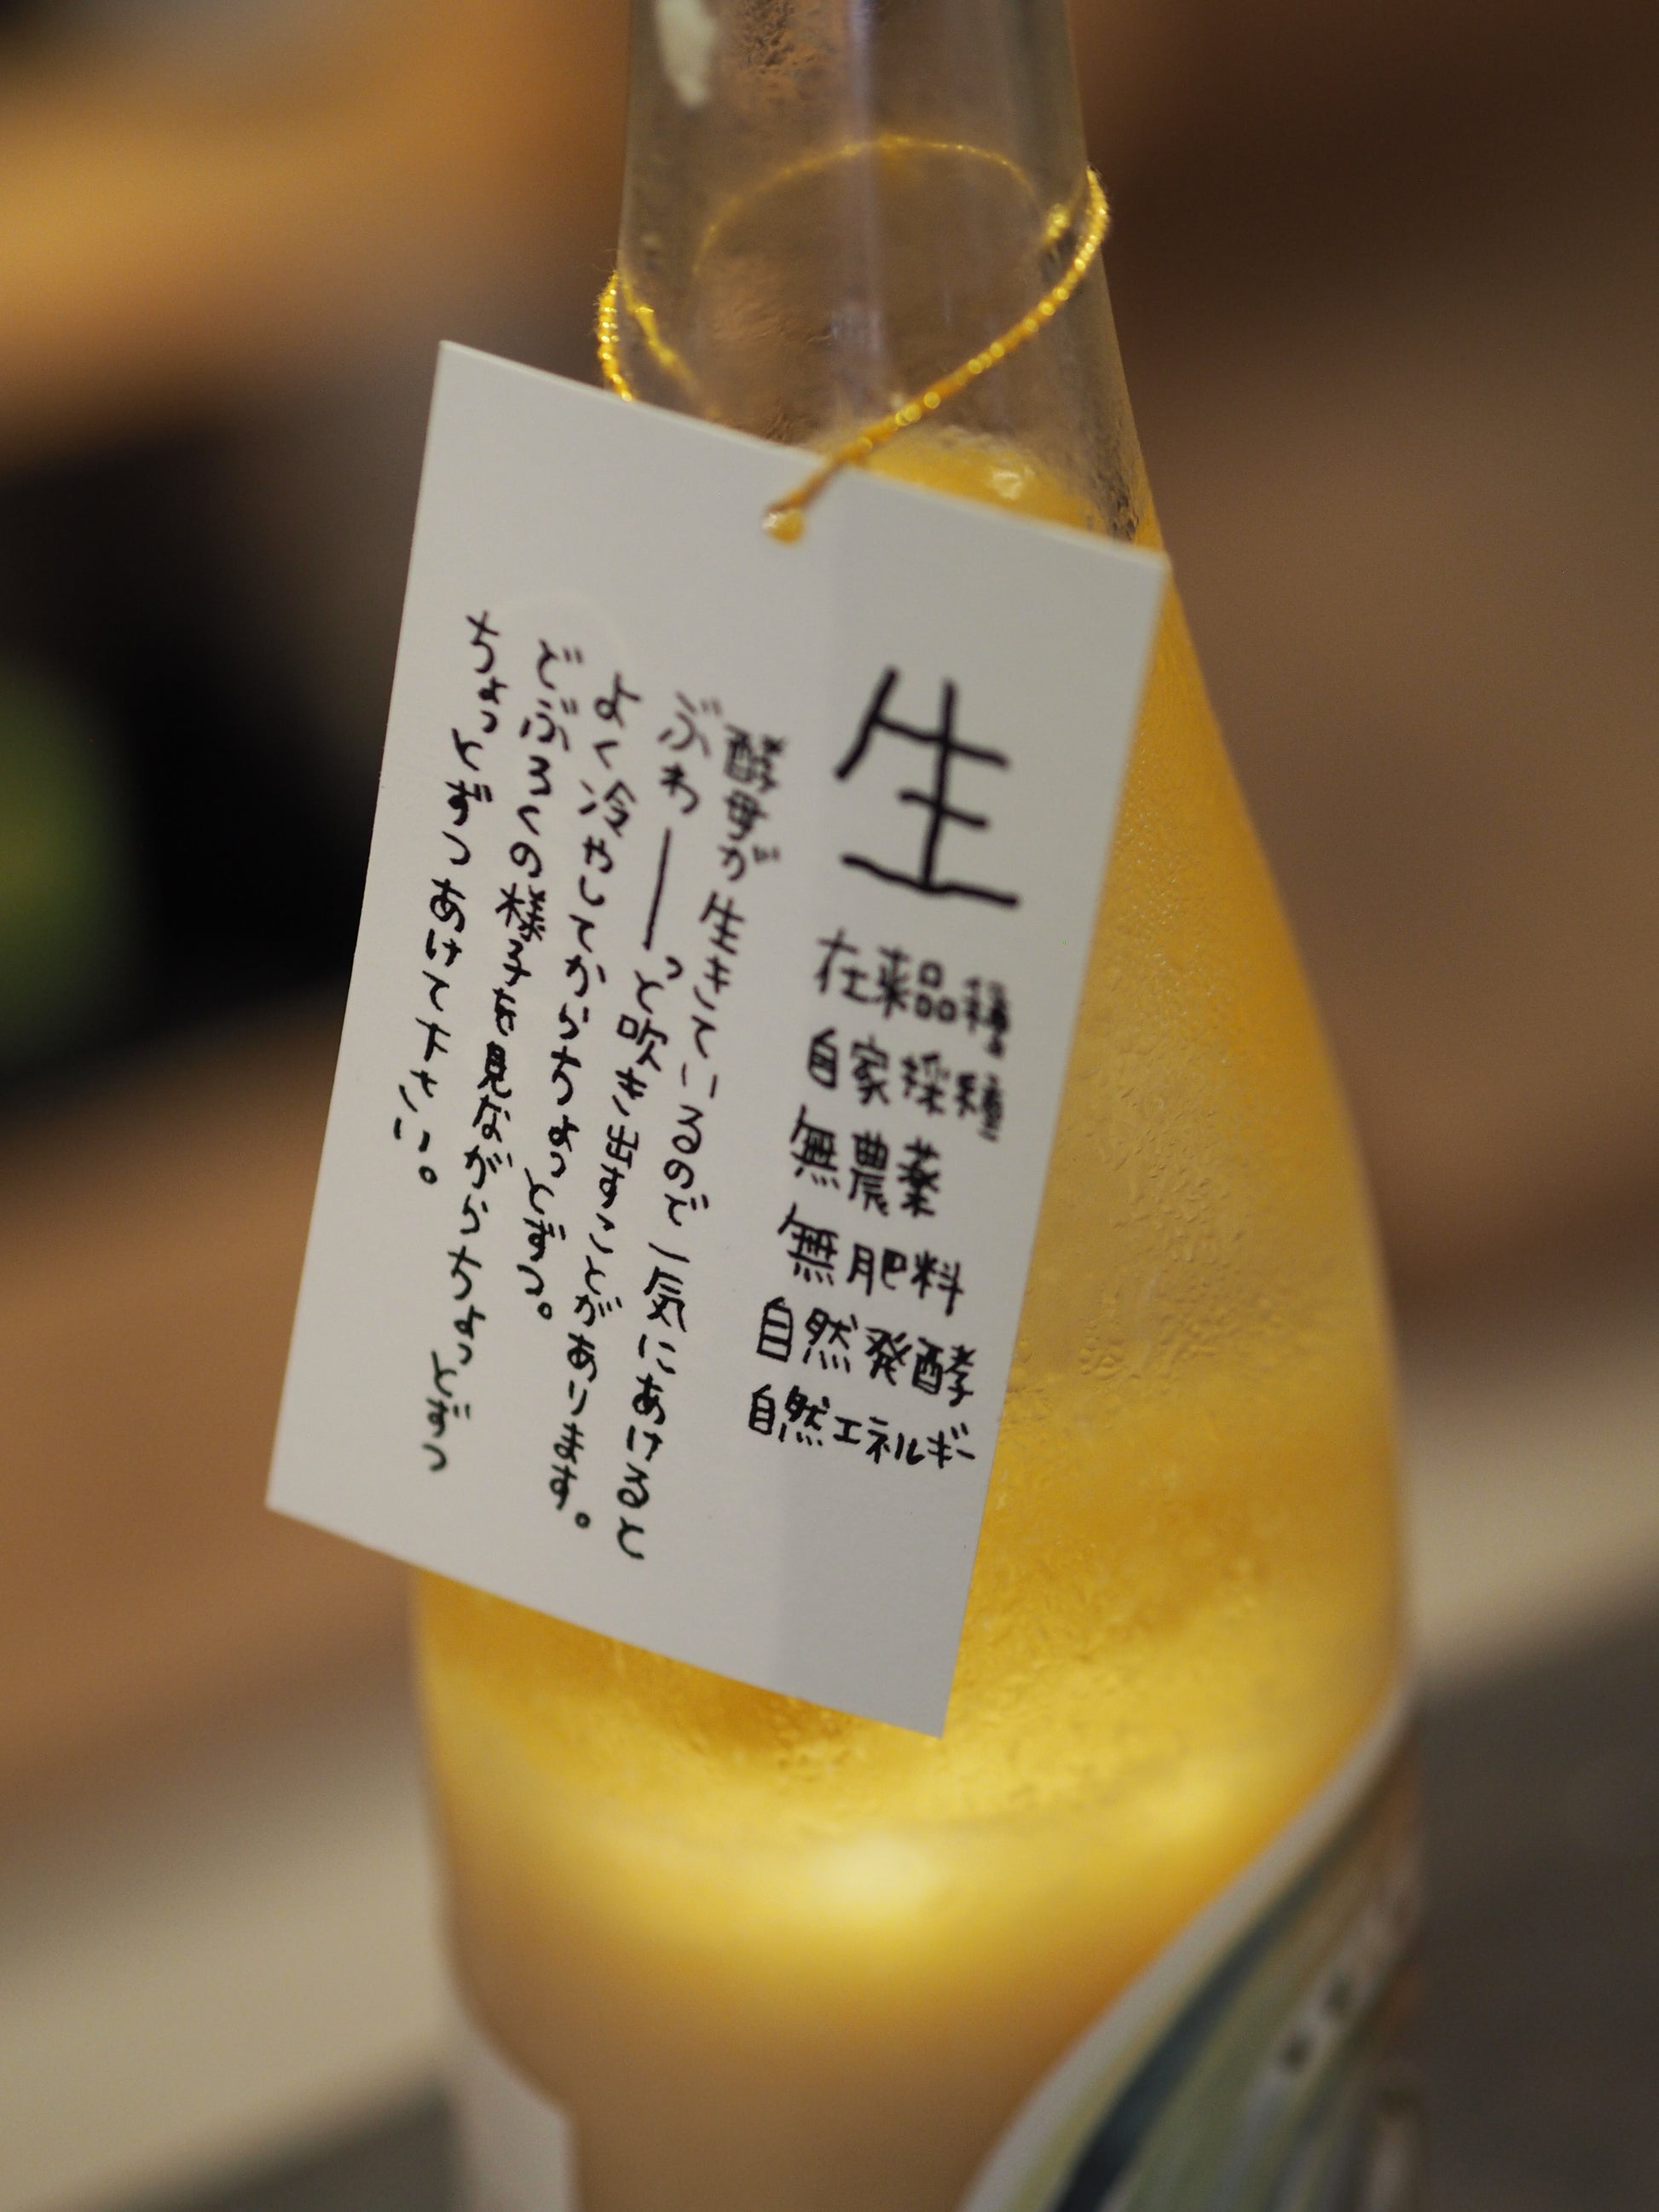 生
在来品種
自家採種
無農薬
無肥料
自然発酵
自然エネルギー
酵母が生きているので一気にあけると
ぶわ――っと吹き出すことがあります。
よく冷やしてからちょっとずつ。
どぶろくの様子を見ながらちょっとずつ
ちょっとずつあけて下さい。